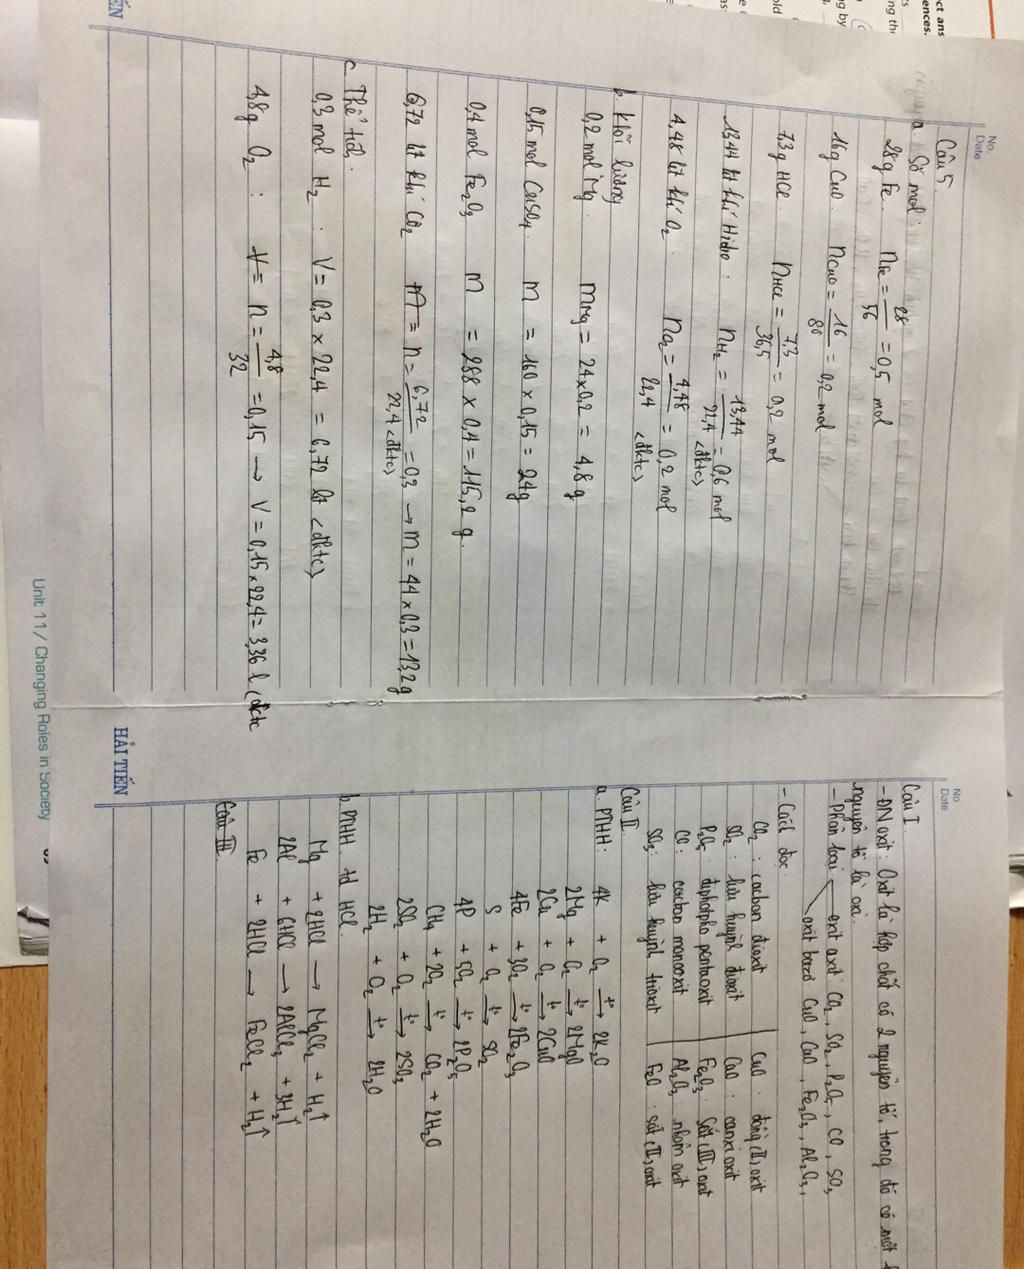 No.
Date
Câu 5.
a. Số mol:
28g Fe. nFe = 28/56 = 0,5 mol
16g CuO. nCuO = 16/80 = 0,2 mol
7,3g HCl. nHCl = 7,3/36,5 = 0,2 mol
13,44 lít khí Hiđro: nH₂ = 13,44/22,4 <đktc> = 0,6 mol
4,48 lít khí O₂. nO₂ = 4,48/22,4 <đktc> = 0,2 mol
b. Khối lượng
0,2 mol Mg. mMg = 24x0,2 = 4,8 g
0,15 mol CuSO₄. m = 160 x 0,15 = 24g
0,4 mol Fe₂O₃ m = 288 x 0,4 = 115,2 g.
6,72 lít khí CO₂ n = 6,72/22,4 <đktc> = 0,3 → m = 44 x 0,3 = 13,2g
c. Thể tích.
0,3 mol H₂. V = 0,3 x 22,4 = 6,72 lít <đktc>
4,8g O₂: V = n = 4,8/32 = 0,15 → V = 0,15x22,4 = 3,36 l (đktc
No.
Date
Câu I.
- ĐN oxit: Oxit là hợp chất có 2 nguyên tố, trong đó có một
nguyên tố là oxi.
- Phân loại oxit axit CO₂, SO₂, P₂O₅, CO, SO₃
oxit bazơ CuO, CaO, Fe₂O₃, Al₂O₃,
- Cách đọc.
CO₂: cacbon đioxit CuO: đồng (II) oxit
SO₂: lưu huỳnh đioxit CaO: canxi oxit
P₂O₅: điphotpho pentaoxit Fe₂O₃: Sắt (III) oxit
CO: cacbon monooxit Al₂O₃: nhôm oxit
SO₃: lưu huỳnh trioxit FeO: sắt (II) oxit
Câu II.
a. PTHH: 4K + O₂ t°→ 2K₂O
2Mg + O₂ t°→ 2MgO
2Cu + O₂ t°→ 2CuO
4Fe + 3O₂ t°→ 2Fe₂O₃
S + O₂ t°→ SO₂
4P + 5O₂ t°→ 2P₂O₅
CH₄ + 2O₂ t°→ CO₂ + 2H₂O
2SO₂ + O₂ t°→ 2SO₃
2H₂ + O₂ t°→ 2H₂O
b. PTHH td HCl.
Mg + 2HCl → MgCl₂ + H₂↑
2Al + 6HCl → 2AlCl₃ + 3H₂↑
Fe + 2HCl → FeCl₂ + H₂↑
Câu III.
HẢI TIẾN
Unit 11 / Changing Roles in Society